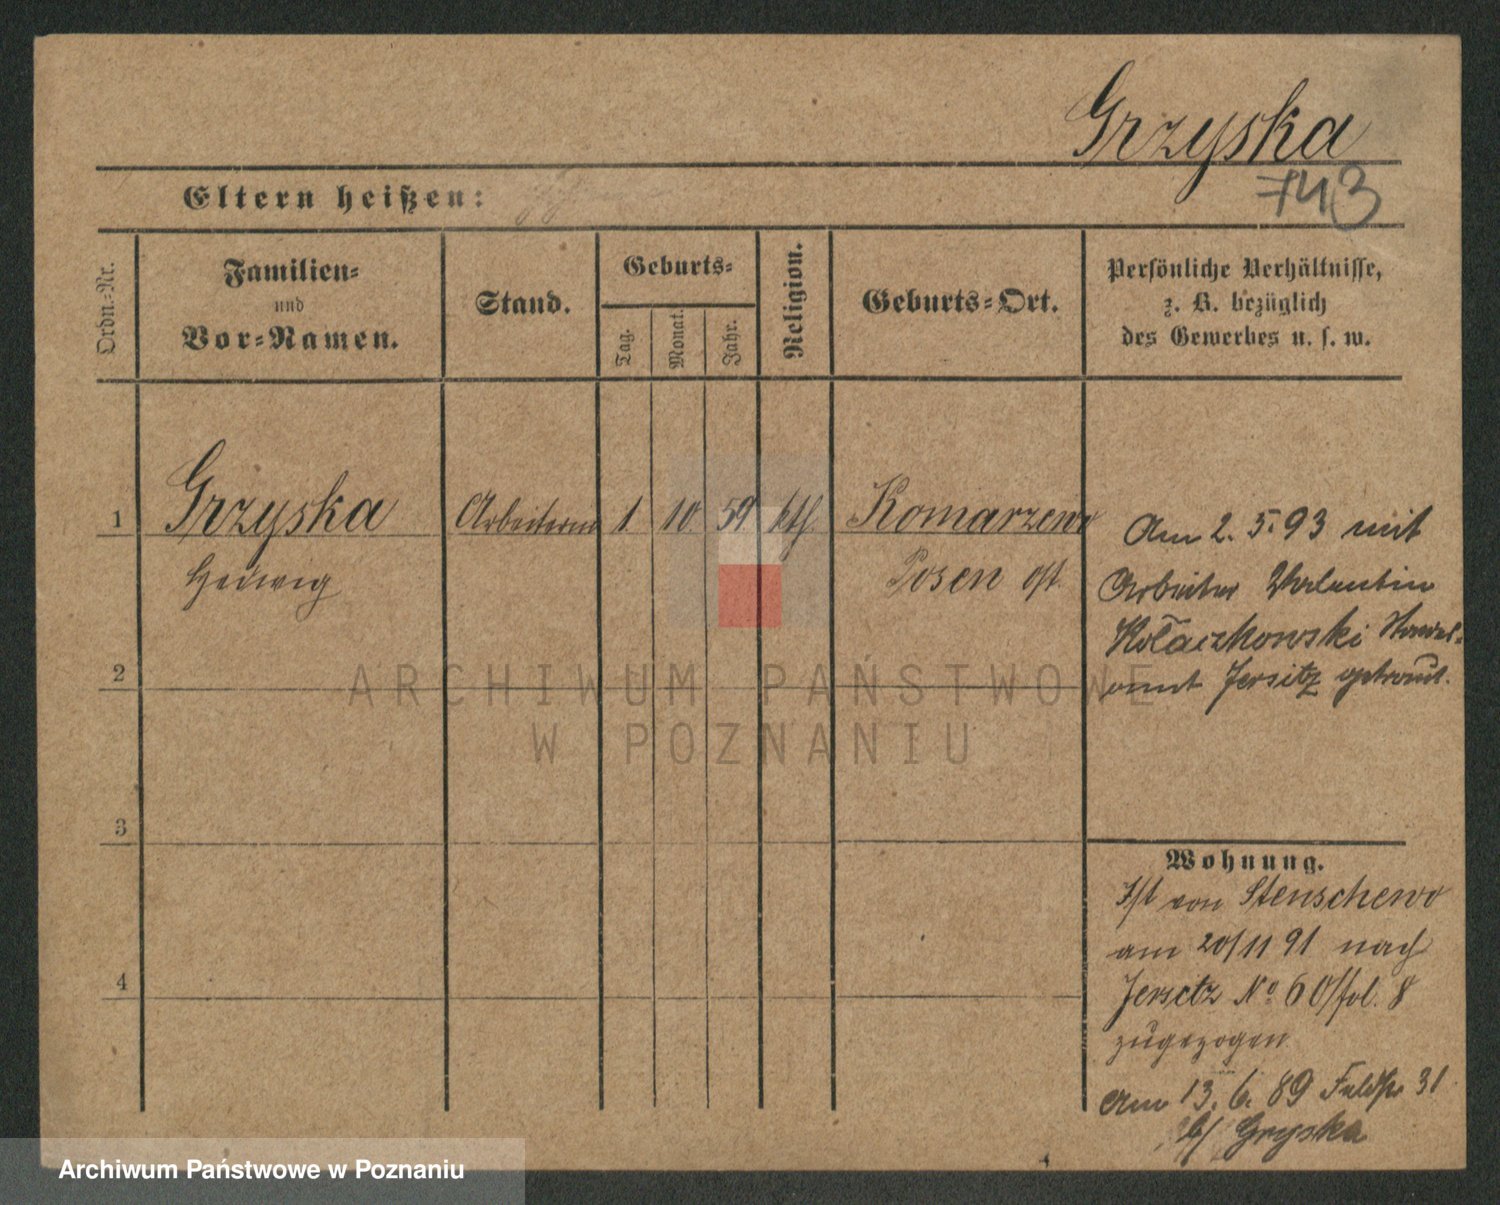 Grzyska
743
Eltern heißen:
Ordn.=Nr.
Familien=
und
Vor=Namen.
Stand.
Geburts=
Tag.
Monat.
Jahr.
Religion.
Geburts=Ort.
Persönliche Verhältnisse,
z. B. bezüglich
des Gewerbes u. s. w.
1 Grzyska Arbeiterin 1 10 59 kth Komarzewo
Hedwig Posen ost.
Am 2. 5. 93 mit
Arbeiter Valentin
Kołaczkowski Standes=
amt Jersitz getraut.
2
3
4
Wohnung.
Ist von Stenschewo
am 20/11 91 nach
Jersitz No 60/fol. 8
zugezogen
Am 13. 6. 89 Feldstr 31
b/ Gryska
ARCHIWUM PAŃSTWOWE
W POZNANIU
Archiwum Państwowe w Poznaniu